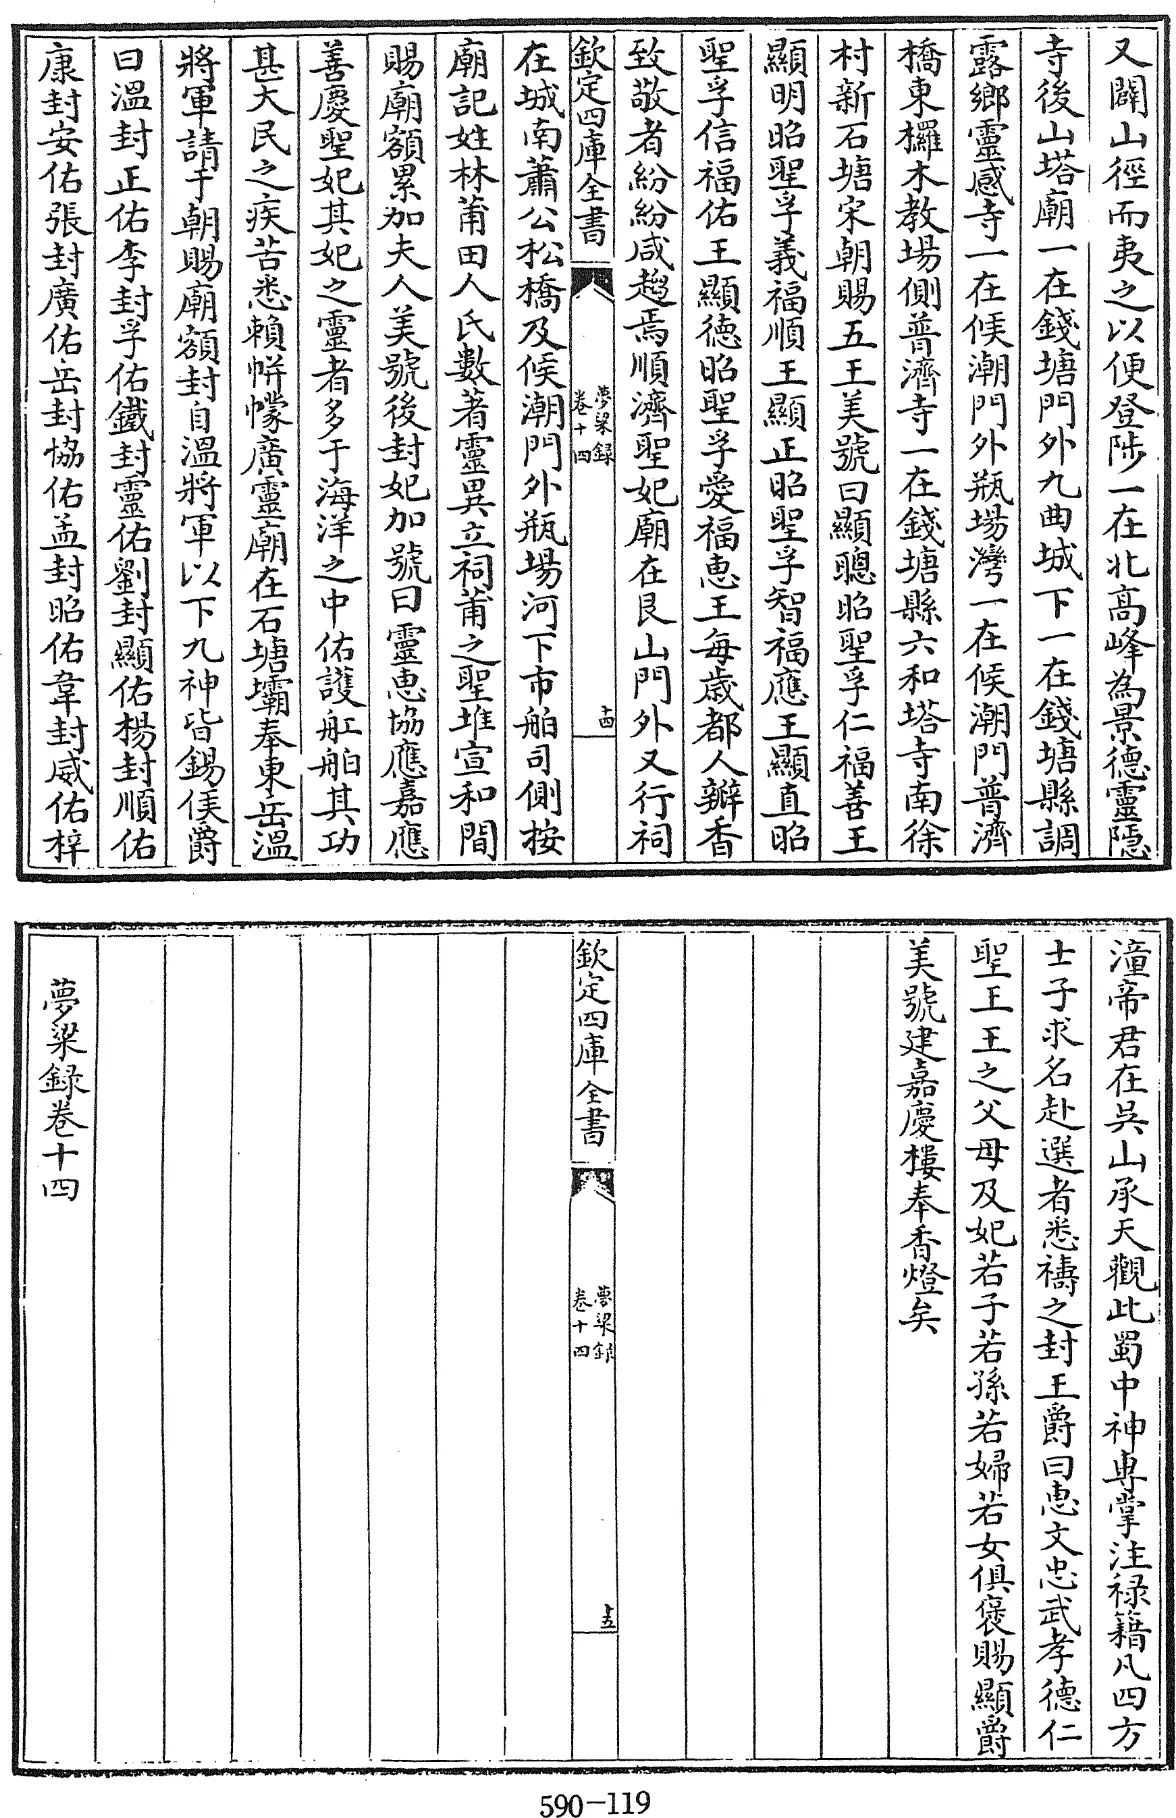 又闢山徑而夷之以便登陟一在北髙峰為景德靈隠
寺後山塔廟一在錢塘門外九曲城下一在錢塘縣調
露鄉靈感寺一在候潮門外瓶場灣一在候潮門普濟
橋東欏木教場側普濟寺一在錢塘縣六和塔寺南徐
村新石塘宋朝賜五王美號曰顯聰昭聖孚仁福善王
顯明昭聖孚義福順王顯正昭聖孚智福應王顯直昭
聖孚信福佑王顯德昭聖孚愛福恵王每歲都人瓣香
致敬者紛紛咸趨焉順濟聖妃廟在艮山門外又行祠
欽定四庫全書
夢梁録
卷十四
十四
在城南蕭公松橋及候潮門外瓶場河下市舶司側按
廟記姓林莆田人氏數著靈異立祠莆之聖堆宣和間
賜廟額累加夫人美號後封妃加號曰靈恵協應嘉應
善慶聖妃其妃之靈者多于海洋之中佑護舡舶其功
甚大民之疾苦悉賴帡幪廣靈廟在石塘壩奉東岳温
將軍請于朝賜廟額封自溫將軍以下九神皆錫侯爵
曰溫封正佑李封孚佑鐵封靈佑劉封顯佑楊封順佑
康封安佑張封廣佑岳封協佑孟封昭佑韋封威佑梓
潼帝君在吳山承天觀此蜀中神專掌注禄籍凡四方
士子求名赴選者悉禱之封王爵曰恵文忠武孝德仁
聖王王之父母及妃若子若孫若婦若女俱褒賜顯爵
美號建嘉慶樓奉香燈矣
欽定四庫全書
夢梁録
卷十四
十五
夢梁録卷十四
590-119